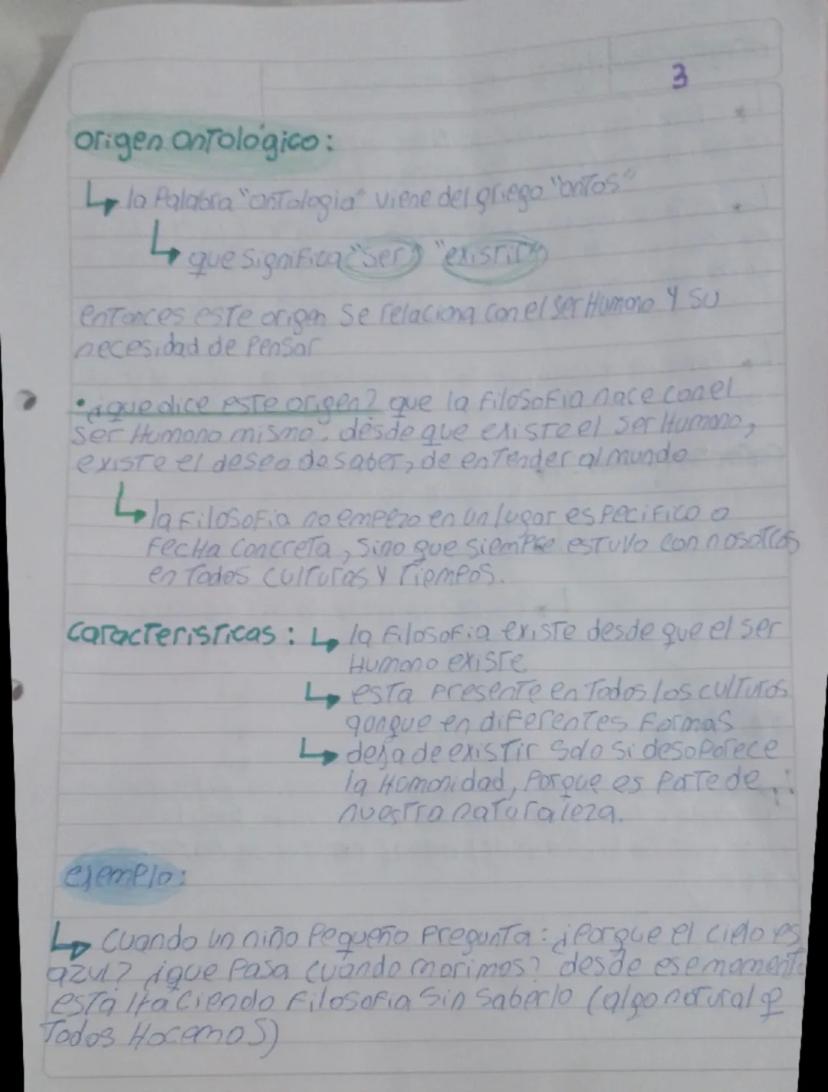 3
Origen ontológico:
↳ la Palabra "ontologia" viene del griego "ontos"
↳ que significa "ser" "existir"
entonces este origen se relaciona con el ser Humano y su
necesidad de pensar
• ¿que dice este origen? que la filosofia nace con el
ser Humano mismo. desde que existe el ser Humano,
existe el deseo de saber, de entender al mundo
↳ la filosofia no empezo en un lugar especifico o
fecha concreta, sino que siempre estuvo con nosotros
en todas culturas y tiempos.
caracteristicas: ↳ la filosofia existe desde que el ser
Humano existe
↳ esta presente en todas las culturas
aunque en diferentes formas
↳ deja de existir solo si desaparece
la Humanidad, porque es parte de
nuestra naturaleza.
ejemplo:
↳ cuando un niño pequeño pregunta: ¿porque el cielo es
azul? ¿que pasa cuando morimos? desde ese momento
está Haciendo filosofia sin saberlo (algo natural q
todos Hacemos)